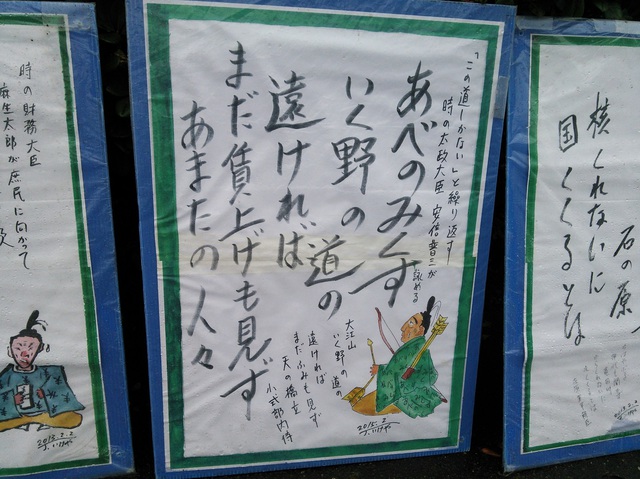 「この道しかない」と繰り返す
時の太政大臣 安倍晋三が
詠める
あべのみくす
いく野の道の
遠ければ
まだ賃上げも見ず
あまたの人々
大江山
いく野の道の
遠ければ
まだふみも見ず
天の橋立
小式部内侍
2015.2
石の原
横くれないに
国くくるとは
時の財務大臣
麻生太郎が庶民に向かって
2015.2.2